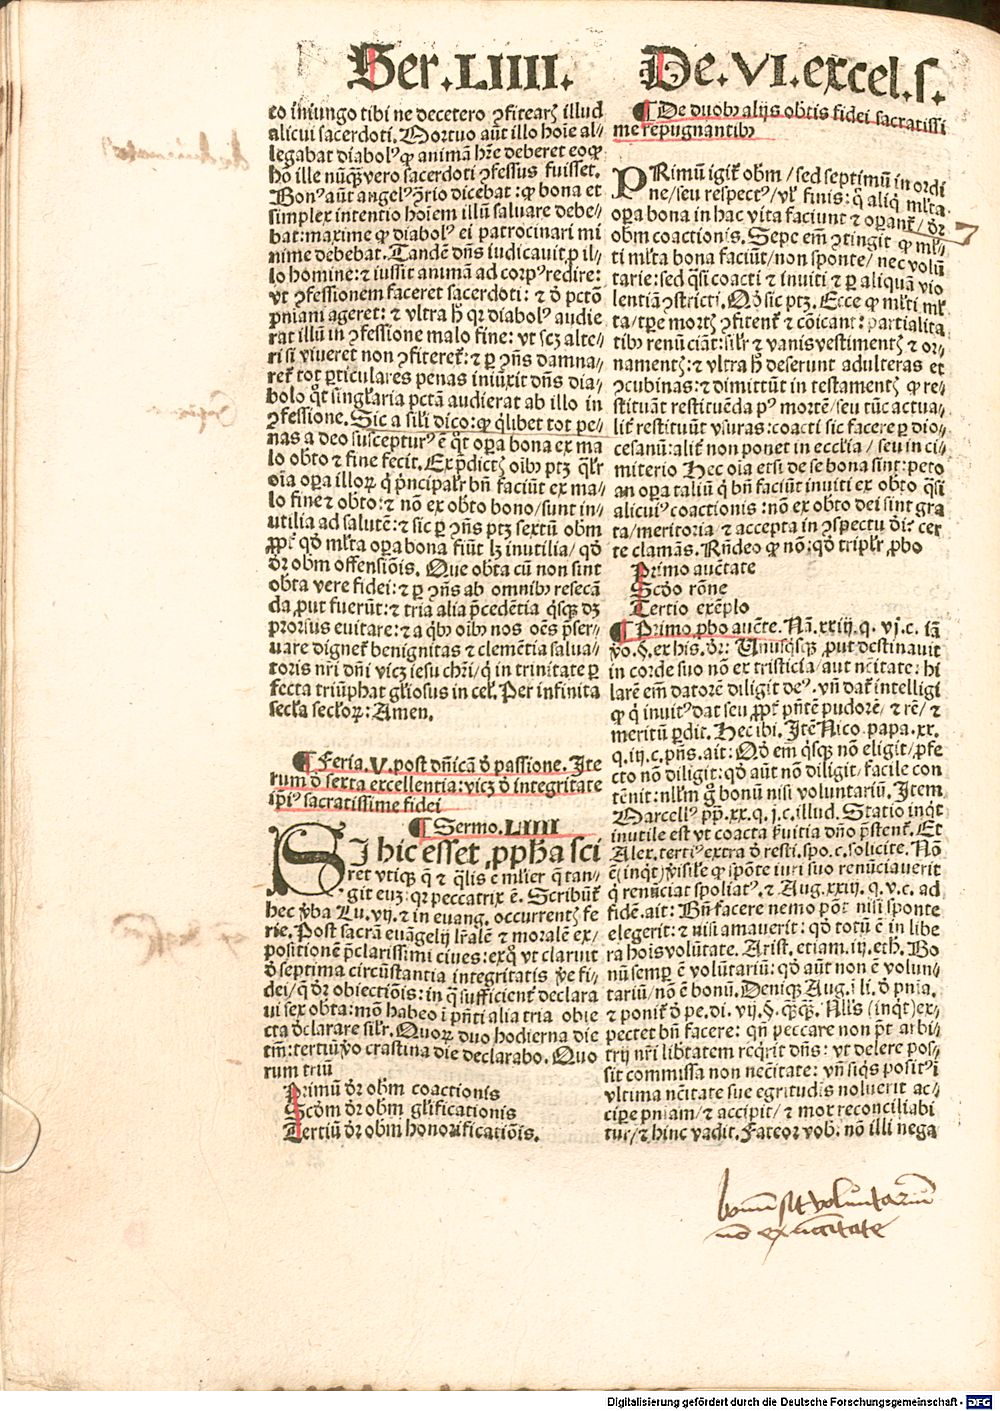 Ser. LIIII.
De. VI. excel. s.
eo iniungo tibi ne decetero ꝯfitearꝭ illud
alicui sacerdoti. Mortuo aūt illo hoīe al⸗
legabat diabolꝰ ꝙ animā hr̄e deberet eoꝙ
hō ille nūꝗ vero sacerdoti ꝯfessus fuisset.
Bonꝰ aūt angelꝰ ꝯ̄rio dicebat: ꝙ bona et
simplex intentio hoīem illū saluare debe⸗
bat: maxime ꝙ diabolꝰ ei patrocinari mi
nime debebat. Tandē dn̄s iudicauit ꝓ il⸗
lo homine: ⁊ iussit animā ad corpꝰ redire:
vt ꝯfessionem faceret sacerdoti: ⁊ d̄ pctō
pn̄iam ageret: ⁊ vltra h̄ qꝛ diabolꝰ audie
rat illū in ꝯfessione malo fine: vt scꝫ alte⸗
ri si viueret non ꝯfiteret̄: ⁊ ꝑ ꝯn̄s damna⸗
ret̄ tot ꝑticulares penas iniūxit dn̄s dia⸗
bolo qͦt singl̄aria pctā audierat ab illo in
ꝯfessione. Sic a sil̄i dico: ꝙ ꝗlibet tot pe⸗
nas a deo suscepturꝰ ē qͦt oꝑa bona ex ma
lo obto ⁊ fine fecit. Ex p̄dictꝭ oībꝰ ptꝫ ꝗl̄r
oīa oꝑa illoꝝ q̇ p̄ncipal̄r bn̄ faciūt ex ma⸗
lo fine ⁊ obto: ⁊ nō ex obto bono/ sunt in⸗
utilia ad salutē: ⁊ sic ꝑ ꝯn̄s ptꝫ sextū obm
ꝓpt̄ qd̄ ml̄ta oꝑa bona fiūt lꝫ inutilia/ qd̄
dr̄ obm offensiōis. Que obta cū non sint
obta vere fidei: ⁊ ꝑ ꝯn̄s ab omnibꝰ resecā
da ꝓut fuerūt: ⁊ tria alia p̄cedētia ꝗsꝗ dꝫ
prorsus euitare: ⁊ a ꝗbꝰ oībꝰ nos oēs p̄ser⸗
uare dignet̄ benignitas ⁊ clemētia salua⸗
toris nr̄i dn̄i vicꝫ iesu chr̄i/ q̇ in trinitate ꝑ
fecta triūphat gl̄iosus in cel̄. Per infinita
secl̄a secl̄oꝝ: Amen.
¶ Feria. V. post dn̄icā d̄ passione. Ite
rum d̄ sexta excellentia: vicꝫ d̄ integritate
ip̄iꝰ sacratissime fidei
¶ Sermo. LIIII
SI hic esset ꝓpha sci
ret vtiꝗ q̄ ⁊ ꝗlis ē ml̄ier q̄ tan⸗
git euꝫ: qꝛ peccatrix ē. Scribūt̄
hec v̄ba Lu. vij. ⁊ in euang. occurrentꝭ fe
rie. Post sacrā euāgelij lr̄alē ⁊ moralē ex⸗
positionē p̄clarissimi ciues: exqͦ vt claruit
d̄ septima circūstantia integritatis v̄e fi⸗
dei/ q̄ dr̄ obiectiōis: in q̄ sufficient̄ declara
ui sex obta: mō habeo ī p̄nti alia tria obie
cta d̄clarare sil̄r. Quoꝝ duo hodierna die
tm̄: tertiū v̄o crastina die declarabo. Quo
rum triū
Primū dr̄ obm coactionis
Scd̄m dr̄ obm gl̄ificationis
Tertiū dr̄ obm honorificatiōis.
¶ De duobꝰ alijs obtis fidei sacratissi
me repugnantibꝰ
PRimū igit̄ obm/ sed septimū in ordi
ne/ seu respectꝰ/ vl̄ finis: q̄ aliꝗ ml̄ta
oꝑa bona in hac vita faciunt ⁊ oꝑant̄/ dr̄
obm coactionis. Sepe em̄ ꝯtingit ꝙ ml̄⸗
ti ml̄ta bona faciūt/ non sponte/ nec volū
tarie: sed ꝗsi coacti ⁊ inuiti ⁊ ꝑ aliquā vio
lentiā ꝯstricti. Qd̄ sic ptꝫ. Ecce ꝙ ml̄ti ml̄
ta/ tꝑe mortꝭ ꝯfitent̄ ⁊ cōicant: partialita
tibꝰ renūciāt: sil̄r ⁊ vanis vestimentꝭ ⁊ or⸗
namentꝭ: ⁊ vltra h̄ deserunt adulteras et
ꝯcubinas: ⁊ dimittūt in testamentꝭ ꝙ re⸗
stituāt restituēda pꝰ mortē/ seu tūc actua⸗
lit̄ restituūt vsuras: coacti sic facere ꝑ dio⸗
cesanū: alit̄ non ponet in eccl̄ia/ seu in ci⸗
miterio Hec oīa etsi de se bona sint: peto
an oꝑa taliū q̇ bn̄ faciūt inuiti ex obto ꝗsi
alicuiꝰ coactionis: nō ex obto dei sint gra
ta/ meritoria ⁊ accepta in ꝯspectu dei: cer
te clamās. Rn̄deo ꝙ nō: qd̄ tripl̄r ꝓbo
Primo auc̄tate
Scd̄o rōne
Tertio exēplo
¶ Primo ꝓbo auc̄te. Nā. xxiij. q. vj. c. iā
v̄o. §. ex his. dr̄: Unusꝗsꝗ ꝓut destinauit
in corde suo nō ex tristicia/ aut nc̄itate: hi
larē em̄ datorē diligit deꝰ. vn̄ dat̄ intelligi
ꝙ q̇ inuitꝰ dat seu ꝓpt̄ pn̄tē pudorē/ ⁊ rē/ ⁊
meritū ꝑdit. Hec ibi. Itē Nico. papa. xx.
q. iij. c. pn̄s. ait: Qd̄ em̄ ꝗsꝗ nō eligit/ ꝓfe
cto nō diligit: qd̄ aūt nō diligit/ facile con
tēnit: nll̄m g̊ bonū nisi voluntariū. Item
Marcellꝰ pp̄. xx. q. j. c. illud. Statio inꝗt
inutile est vt coacta ẜuitia dn̄o p̄stent̄. Et
Alex. tertiꝰ extra d̄ resti. spo. c. solicite. Nō
ē (inꝗt) v̄isil̄e ꝙ spōte iuri suo renūciauerit
q̇ renūciat spoliatꝰ. ⁊ Aug. xxiij. q. v. c. ad
fidē. ait: Bn̄ facere nemo pōt nisi sponte
elegerit: ⁊ nisi amauerit: qd̄ totū ē in libe
ra hoīs volūtate. Arist. etiam. iij. eth. Bo
nū semꝑ ē volūtariū: qd̄ aūt non ē volun⸗
tariū/ nō ē bonū. Deniꝗ Aug. ī li. d̄ pn̄ia.
⁊ ponit̄ d̄ pe. di. vij. §. ꝗsꝗs. Null̄s (inꝗt) ex⸗
pectet bn̄ facere: qn̄ peccare non pōt arbi⸗
trij nr̄i lib̄tatem reꝗrit dn̄s: vt delere pos⸗
sit commissa non nc̄itate: vn̄ siꝗs positꝰ ī
vltima nc̄itate sue egritudis noluerit ac⸗
ciꝑe pn̄iam/ ⁊ accipit/ ⁊ mox reconciliabi
tur/ ⁊ hinc vadit. Fateor vob. nō illi nega
7
bonum sit voluntarium
non ex necessitate
Digitalisierung gefördert durch die Deutsche Forschungsgemeinschaft - DFG